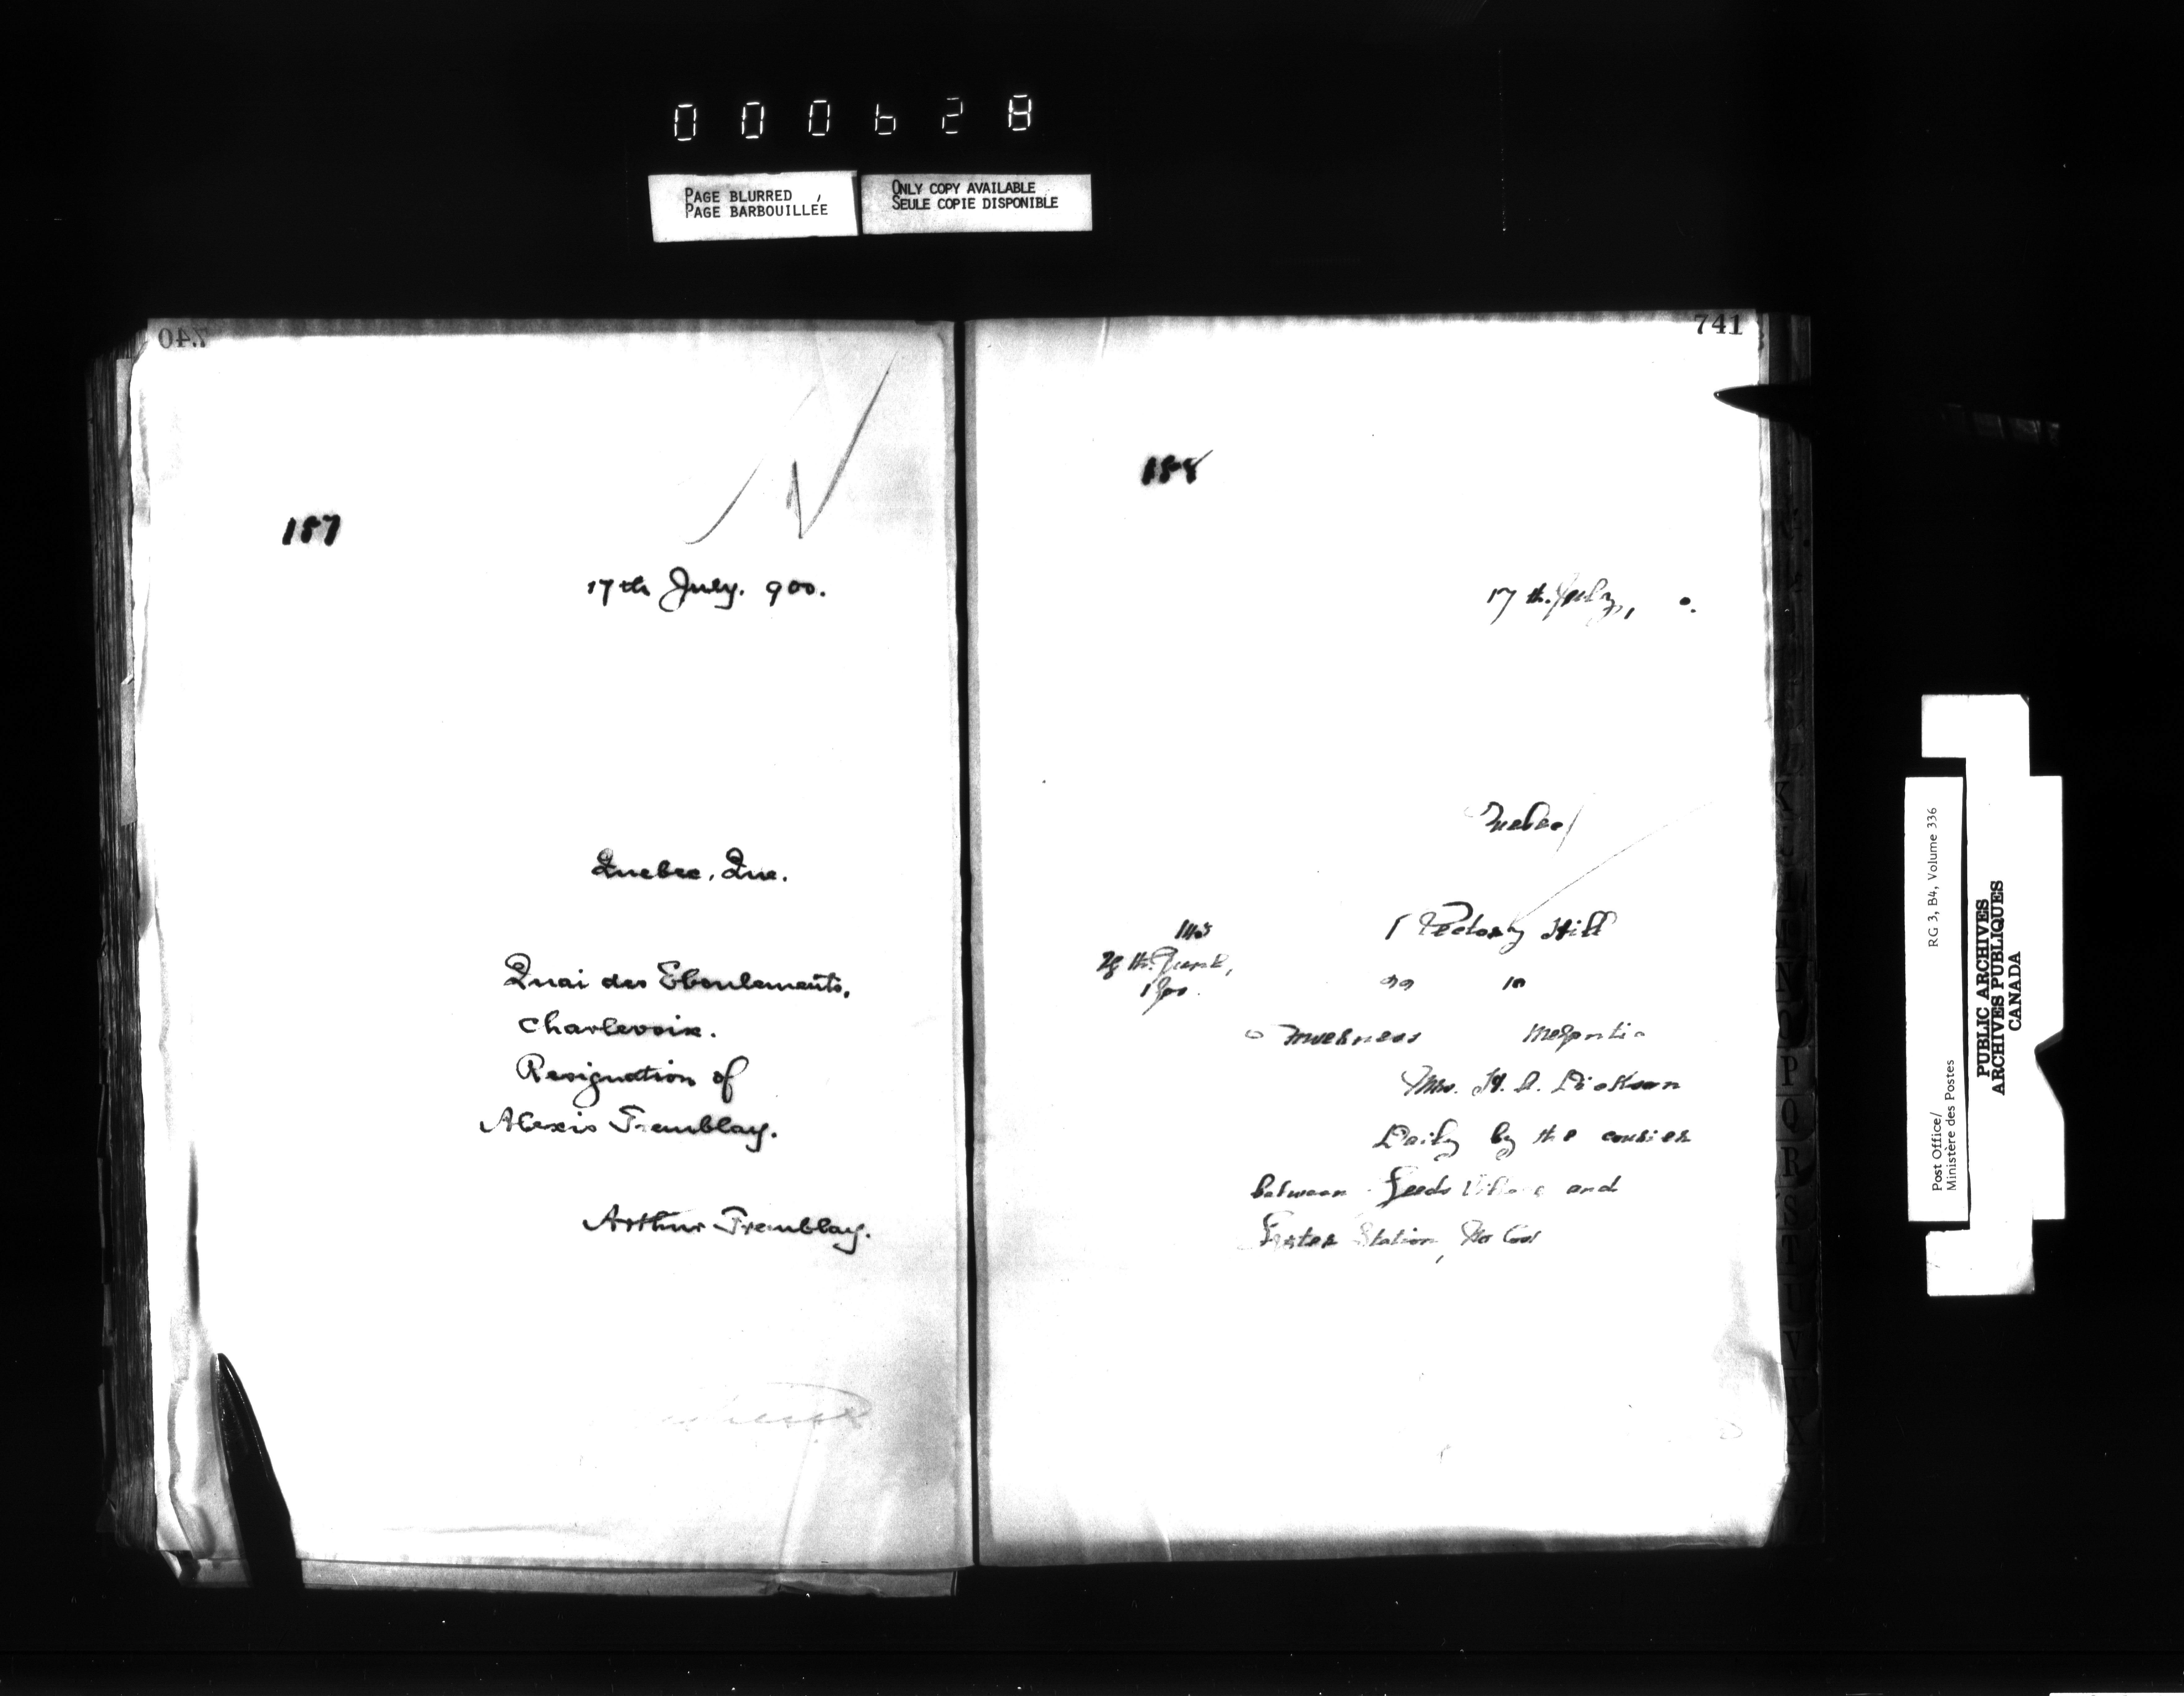 000628
PAGE BLURRED
PAGE BARBOUILLÉE
ONLY COPY AVAILABLE
SEULE COPIE DISPONIBLE
740
187
17th July. 900.
Quebec, Que.
Quai des Eboulements,
Charlevoix.
Resignation of
Alexis Tremblay.
Arthur Tremblay.
741
188
17th. July,
Quebec
Rectory Hill
Inverness Megantic
Mrs. H. A. Dickson
Daily by the courier
between Leeds Village and
Station, No Cost
K
N
P
Q
R
S
T
U
V
X
Post Office/
Ministère des Postes
RG 3, B4, Volume 336
PUBLIC ARCHIVES
ARCHIVES PUBLIQUES
CANADA